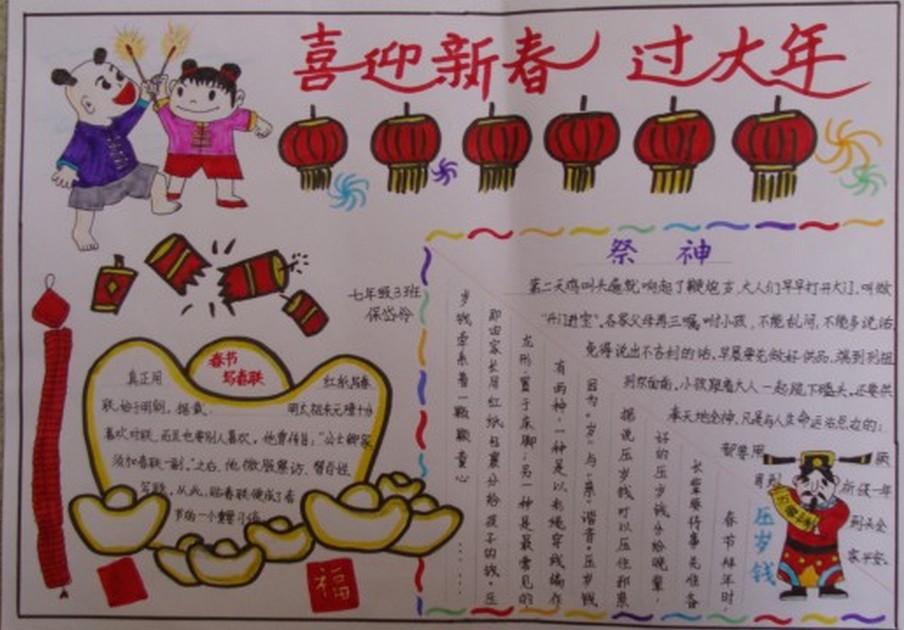 喜迎新春 过大年
七年级3班
祭神
第二天鸡叫头遍就响起了鞭炮声,大人们早早打开大门,叫做
"开门进宝"。各家父母再三嘱咐小孩,不能乱问,不能多说话,
免得说出不吉利的话,早晨要先做好供品,端到列祖
列宗面前,小孩跟着大人一起跪下磕头,还要供
奉天地全神,凡是与人生命运法息在的:
都要用
新怪一年
到头全
家平安。
春节
写春联
真正用 红纸写春
联,始于明朝,据载, 明太祖朱元璋十分
喜欢对联,而且也要别人喜欢,他曾传旨:"公士卿家
须加春联一副。"之后,他微服察访,督百姓
写联,从此,贴春联便成了春
节的一个重要习俗
福
压岁钱
春节拜年时,
长辈要将事先准备
好的压岁钱分给晚辈,
据说压岁钱可以压住邪祟
因为"岁"与"祟"谐音,压岁钱
有两种,一种是以彩绳穿线编作
龙形,置于床脚;另一种是最常见的
即由家长用红纸包裹分给孩子的钱。压
岁钱牵系着一颗颗童心......